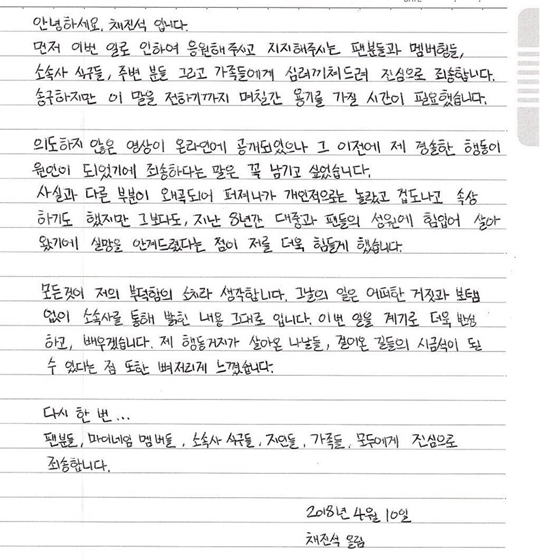 안녕하세요, 채진석 입니다.
먼저 이번 일로 인하여 응원해주시고 지지해주시는 팬분들과 멤버형들,
소속사 식구들, 주변 분들 그리고 가족들에게 심려끼쳐드려 진심으로 죄송합니다.
송구하지만 이 말을 전하기까지 며칠간 용기를 가질 시간이 필요했습니다.
의도하지 않은 영상이 온라인에 공개되었으나 그 이전에 제 경솔한 행동이
원인이 되었기에 죄송하다는 말은 꼭 남기고 싶었습니다.
사실과 다른 부분이 왜곡되어 퍼져나가 개인적으로는 놀랐고 겁도나고 속상
하기도 했지만 그보다도, 지난 8년간 대중과 팬들의 성원에 힘입어 살아
왔기에 실망을 안겨드렸다는 점이 저를 더욱 힘들게 했습니다.
모든것이 저의 부덕함의 소치라 생각합니다. 그날의 일은 어떠한 거짓과 보탬
없이 소속사를 통해 밝힌 내용 그대로 입니다. 이번 일을 계기로 더욱 반성
하고, 배우겠습니다. 제 행동거지가 살아온 나날들, 걸어온 길들의 시금석이 될
수 있다는 점 또한 뼈저리게 느꼈습니다.
다시 한 번...
팬분들, 마이네임 멤버들, 소속사 식구들, 지인들, 가족들, 모두에게 진심으로
죄송합니다.
2018년 4월 10일
채진석 올림